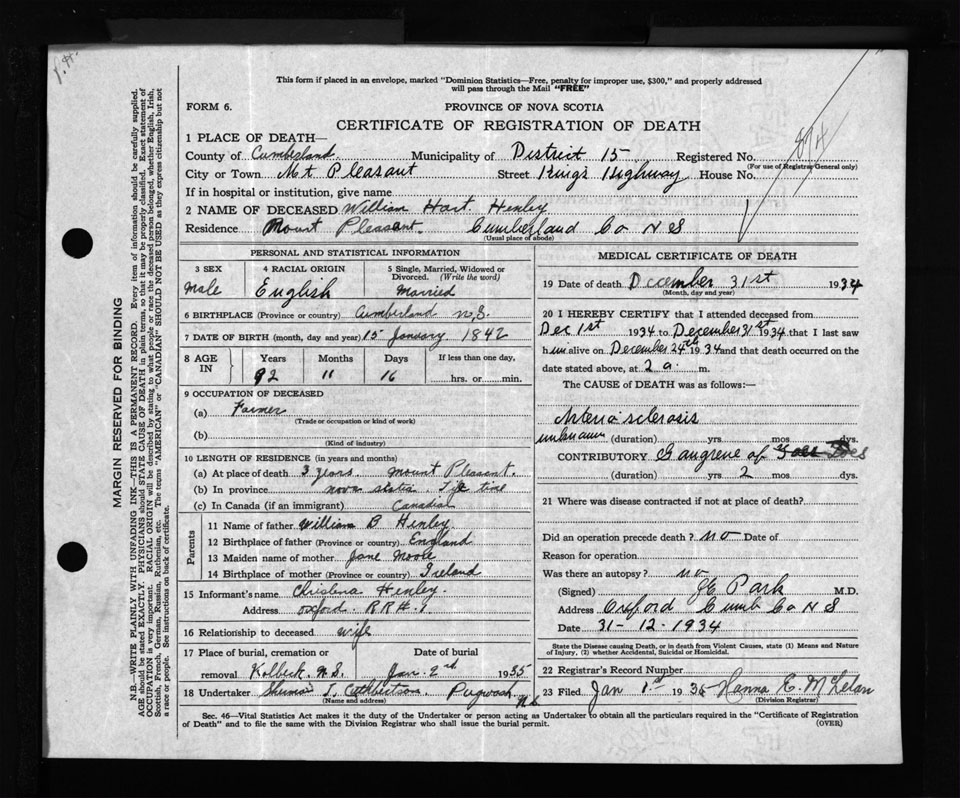 J.H.
This form if placed in an envelope, marked "Dominion Statistics—Free, penalty for improper use, $300," and properly addressed
will pass through the Mail "FREE"
FORM 6.
PROVINCE OF NOVA SCOTIA
CERTIFICATE OF REGISTRATION OF DEATH
1 PLACE OF DEATH—
County of Cumberland Municipality of District 15 Registered No. 874
(For use of Registrar General only)
City or Town Mt Pleasant Street Kings Highway House No.
If in hospital or institution, give name
2 NAME OF DECEASED William Hart Henley
Residence Mount Pleasant. Cumberland Co N S
(Usual place of abode)
PERSONAL AND STATISTICAL INFORMATION
3 SEX 4 RACIAL ORIGIN 5 Single, Married, Widowed or
Divorced. (Write the word)
Male English Married
6 BIRTHPLACE (Province or country) Cumberland N.S.
7 DATE OF BIRTH (month, day and year) 15 January 1842
8 AGE IN Years Months Days If less than one day,
92 11 16 hrs. or min.
9 OCCUPATION OF DECEASED
(a) Farmer
(Trade or occupation or kind of work)
(b)
(Kind of industry)
10 LENGTH OF RESIDENCE (in years and months)
(a) At place of death 3 years Mount Pleasant.
(b) In province nova scotia. Life time
(c) In Canada (if an immigrant) Canadian
Parents
11 Name of father William B Henley
12 Birthplace of father (Province or country) England
13 Maiden name of mother Jane Moore
14 Birthplace of mother (Province or country) Ireland
15 Informant's name Christena Henley
Address Oxford. R R # 1
16 Relationship to deceased wife
17 Place of burial, cremation or Date of burial
removal Kolbeck N.S. Jan. 2nd 1935
18 Undertaker L Cuthbertson Pugwash NS
(Name and address)
MEDICAL CERTIFICATE OF DEATH
19 Date of death December 31st 1934
(Month, day and year)
20 I HEREBY CERTIFY that I attended deceased from
Dec 1st 1934 to December 31st 1934 that I last saw
him alive on December 24th 1934 and that death occurred on the
date stated above, at 2 a. m.
The CAUSE OF DEATH was as follows:—
Arterio sclerosis
unknown (duration) yrs mos dys.
CONTRIBUTORY Gangrene of Toes
(duration) yrs 2 mos dys.
21 Where was disease contracted if not at place of death?
Did an operation precede death? no Date of
Reason for operation
Was there an autopsy? no
(Signed) Park M.D.
Address Oxford Cumb Co N S
Date 31-12-1934
State the Disease causing Death, or in death from Violent Causes, state (1) Means and Nature
of Injury, (2) whether Accidental, Suicidal or Homicidal.
22 Registrar's Record Number
23 Filed Jan 1st 1935 Hanna E. McLelan
(Division Registrar)
Sec. 46—Vital Statistics Act makes it the duty of the Undertaker or person acting as Undertaker to obtain all the particulars required in the "Certificate of Registration
of Death" and to file the same with the Division Registrar who shall issue the burial permit. (OVER)
MARGIN RESERVED FOR BINDING
N.B.—WRITE PLAINLY WITH UNFADING INK—THIS IS A PERMANENT RECORD. Every item of information should be carefully supplied.
AGE should be stated EXACTLY. PHYSICIANS should STATE CAUSE OF DEATH in plain terms, so that it may be properly classified. Exact statement of
OCCUPATION is very important. RACIAL ORIGIN will be described by stating to what people or race the deceased person belonged, whether English, Irish,
Scottish, French, German, Russian, Ruthenian, etc. The terms "AMERICAN" or "CANADIAN" SHOULD NOT BE USED as they express citizenship but not
a race or people. See instructions on back of certificate.